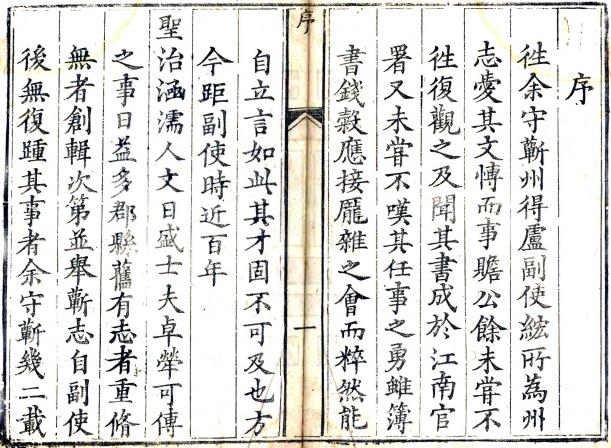 序
徃余守蘄州得盧副使綋所為州
志愛其文愽而事贍公餘未甞不
徃復觀之及聞其書成於江南官
署又未甞不嘆其任事之勇雖簿
書錢穀應接龎雜之會而粹然能
序
一
自立言如此其才固不可及也方
今距副使時近百年
聖治涵濡人文日盛士夫卓犖可傳
之事日益多郡縣舊有志者重脩
無者創輯次第並舉蘄志自副使
後無復踵其事者余守蘄幾二載